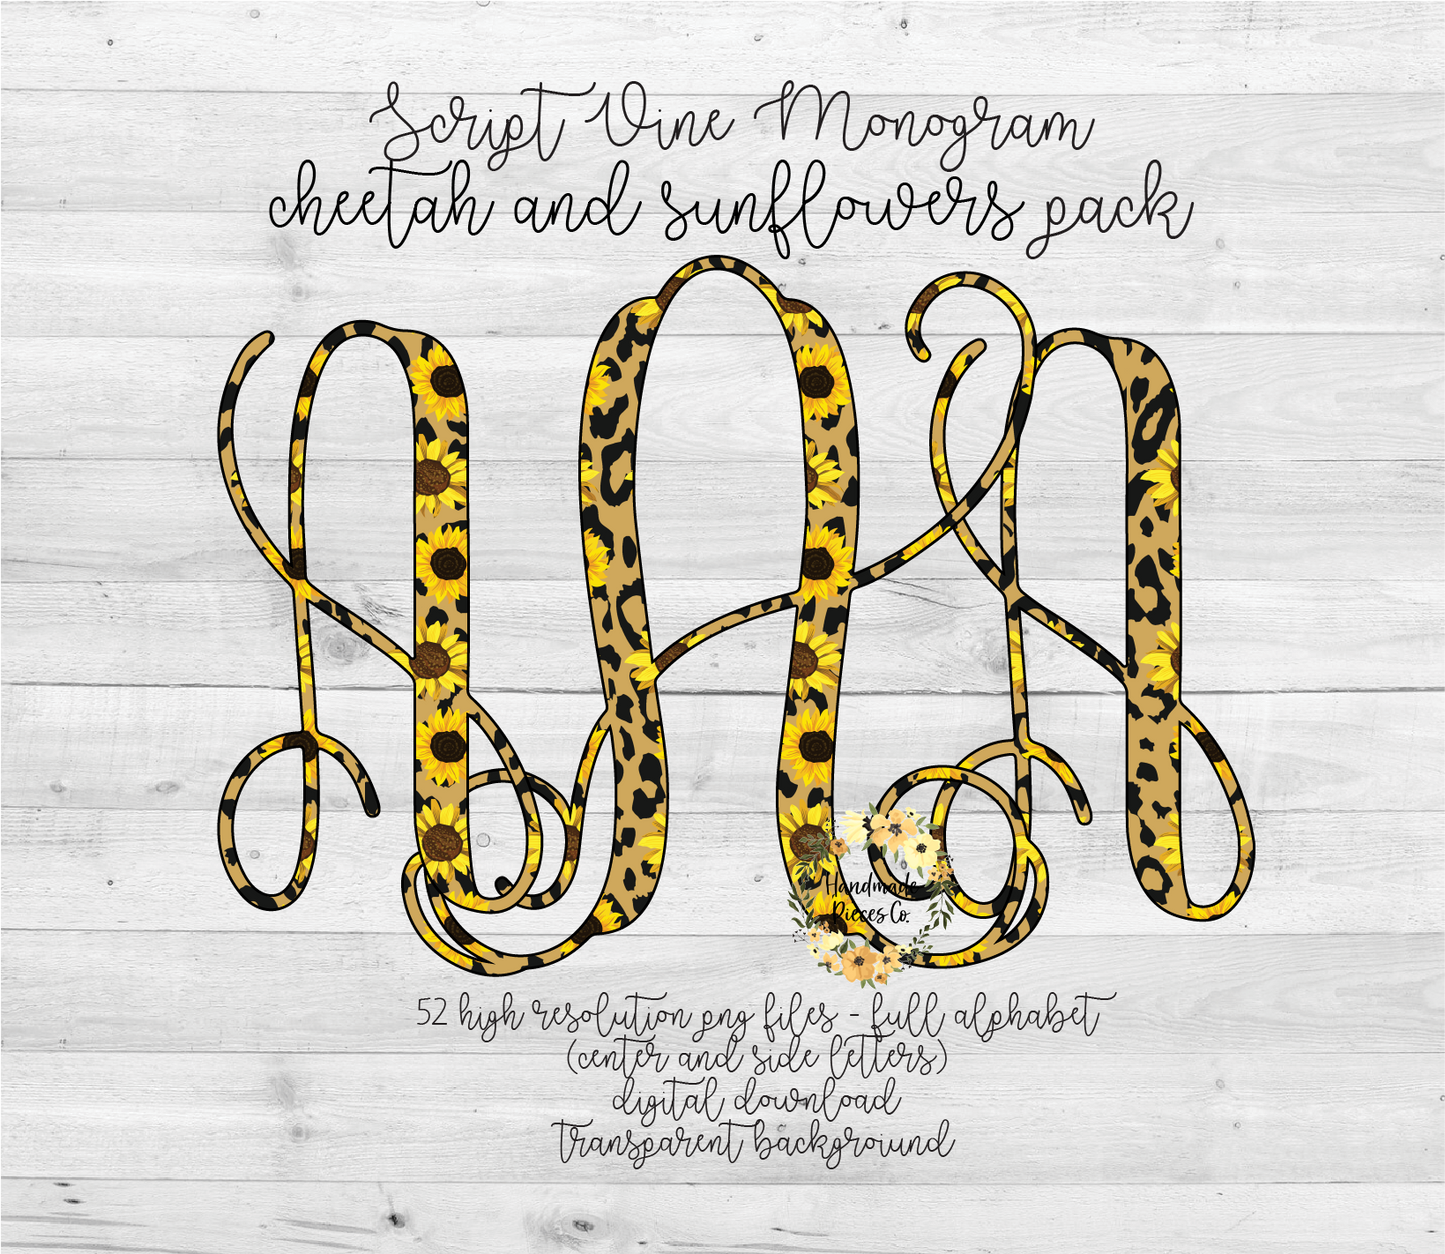 Script Vine Monogram
cheetah and sunflowers pack
AAA
Handmade
Pieces Co.
52 high resolution png files - full alphabet
(center and side letters)
digital download
transparent background